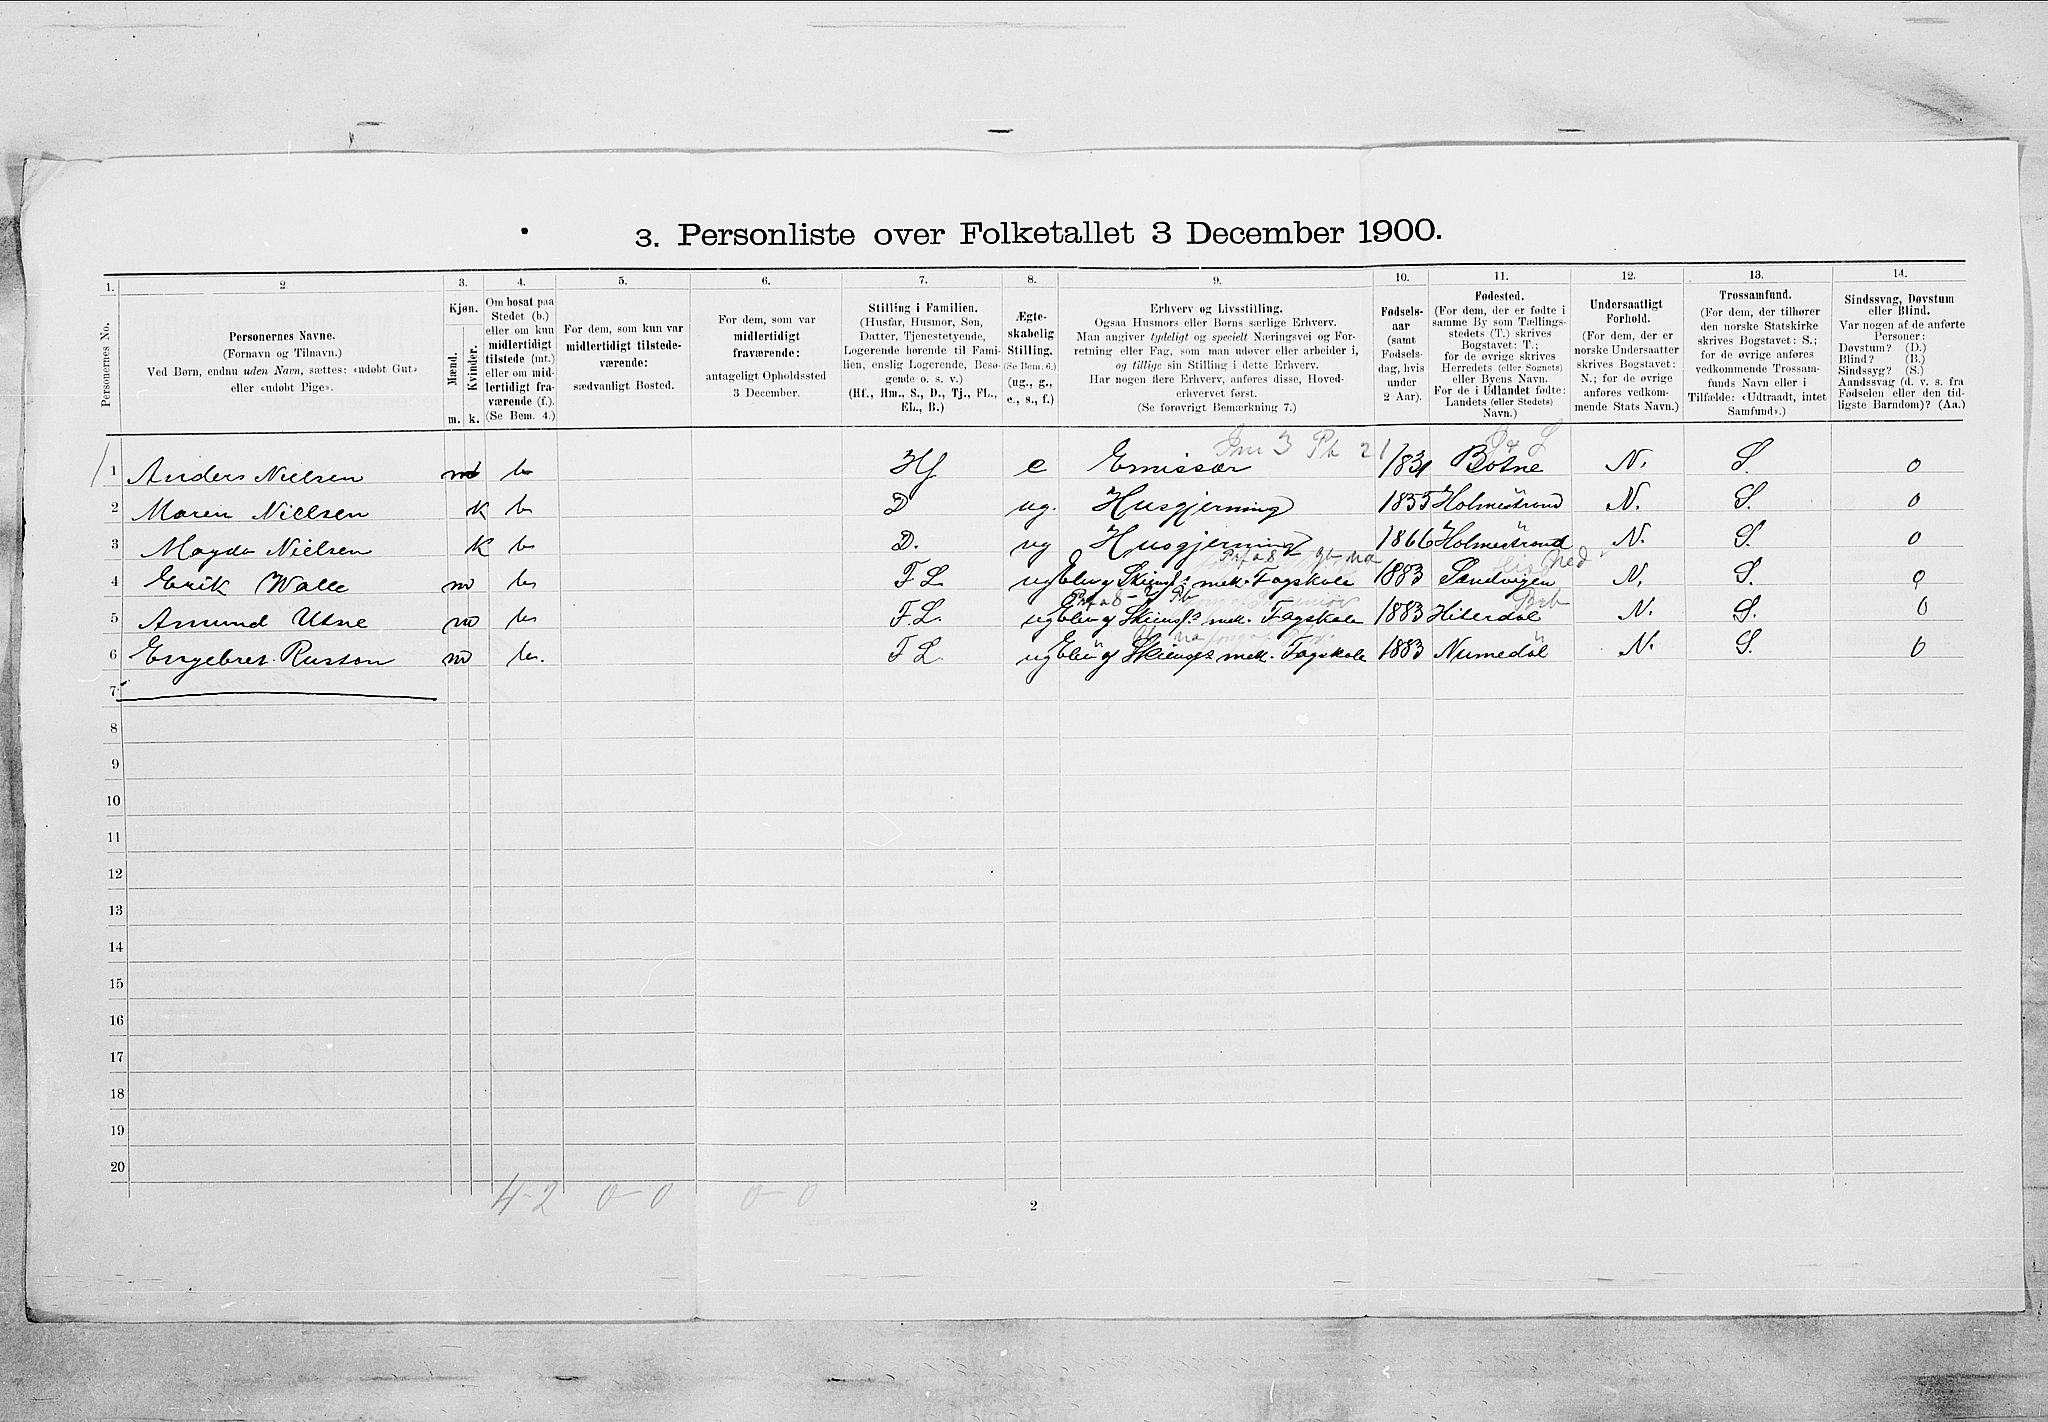 3. Personliste over Folketallet 3 December 1900.
1. 2 3. 4. 5. 6. 7. 8. 9. 10. 11. 12. 13. 14.
Personernes No.
Personernes Navne.
(Fornavn og Tilnavn.)
Ved Børn, endnu uden Navn, sættes: «udøbt Gut»
eller «udøbt Pige».
Kjøn.
Mænd.
Kvinder.
m. k.
Om bosat paa
Stedet (b.)
eller om kun
midlertidigt
tilstede (mt.)
eller om mid-
lertidigt fra-
værende (f.).
(Se Bem. 4.)
For dem, som kun var
midlertidigt tilstede-
værende:
sædvanligt Bosted.
For dem, som var
midlertidigt
fraværende:
antageligt Opholdssted
3 December.
Stilling i Familien.
(Husfar, Husmor, Søn,
Datter, Tjenestetyende,
Logerende hørende til Fami-
lien, enslig Logerende, Besø-
gende o. s. v.)
(Hf., Hm., S., D., Tj., FL.,
EL., B.)
Ægte-
skabelig
Stilling.
(Se Bem. 6.)
(ug., g.,
e., s., f.)
Erhverv og Livsstilling.
Ogsaa Husmors eller Børns særlige Erhverv.
Man angiver tydeligt og specielt Næringsvei og For-
retning eller Fag, som man udøver eller arbeider i,
og tillige sin Stilling i dette Erhverv.
Har nogen flere Erhverv, anføres disse, Hoved-
erhvervet først.
(Se forøvrigt Bemærkning 7.)
Fødsels-
aar
(samt
Fødsels-
dag, hvis
under
2 Aar).
Fødested.
(For dem, der er fødte i
samme By som Tællings-
stedets (T.) skrives
Bogstavet: T.;
for de øvrige skrives
Herredets (eller Sognets)
eller Byens Navn.
For de i Udlandet fødte:
Landets (eller Stedets)
Navn.)
Undersaatligt
Forhold.
(For dem, der er
norske Undersaatter
skrives Bogstavet:
N.; for de øvrige
anføres vedkom-
mende Stats Navn.)
Trossamfund.
(For dem, der tilhører
den norske Statskirke
skrives Bogstavet: S.;
for de øvrige anføres
vedkommende Trossam-
funds Navn eller i
Tilfælde: «Udtraadt, intet
Samfund».)
Sindssvag, Døvstum
eller Blind.
Var nogen af de anførte
Personer:
Døvstum? (D.)
Blind? (B.)
Sindssyg? (S.)
Aandssvag (d. v. s. fra
Fødselen eller den tid-
ligste Barndom)? (Aa.)
1 Anders Nielsen m b Hf e Emissær 1831 Botne N. S. 0
2 Maren Nielsen k b D ug. Husgjerning 1855 Holmestrand N. S. 0
3 Magda Nielsen k b D. ug Husgjerning 1866 Holmestrand N. S. 0
4 Erik Walle m b F L ug Elev af Skiensf.s mek. Fagskole 1883 Sandvigen N. S. 0
5 Amund Utne m b F L. ug Elev af Skiensf.s mek. Fagskole 1883 Hiterdal N. S. 0
6 Engebret Rustan m b. F L ug Elev af mek. Fagskole 1883 Numedal N. S. 0
7
8
9
10
11
12
13
14
15
16
17
18
19
20
4-2 0-0 0-0
2